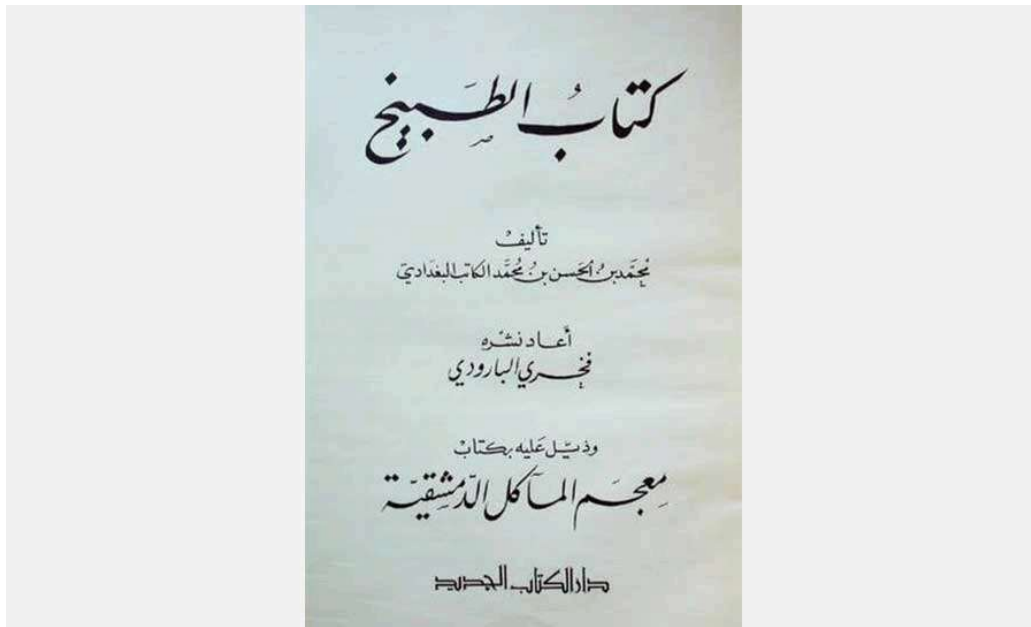 كتابُ الطَّبيخ
تأليفُ
محمَّد بنُ الحسن بنُ محُمَّد الكاتب البغداديّ
أعاد نشره
فخري البارودي
وذيّل عَليه بكتابْ
معِجَم المآكل الدّمشقيّة
دار الكتاب الجديد